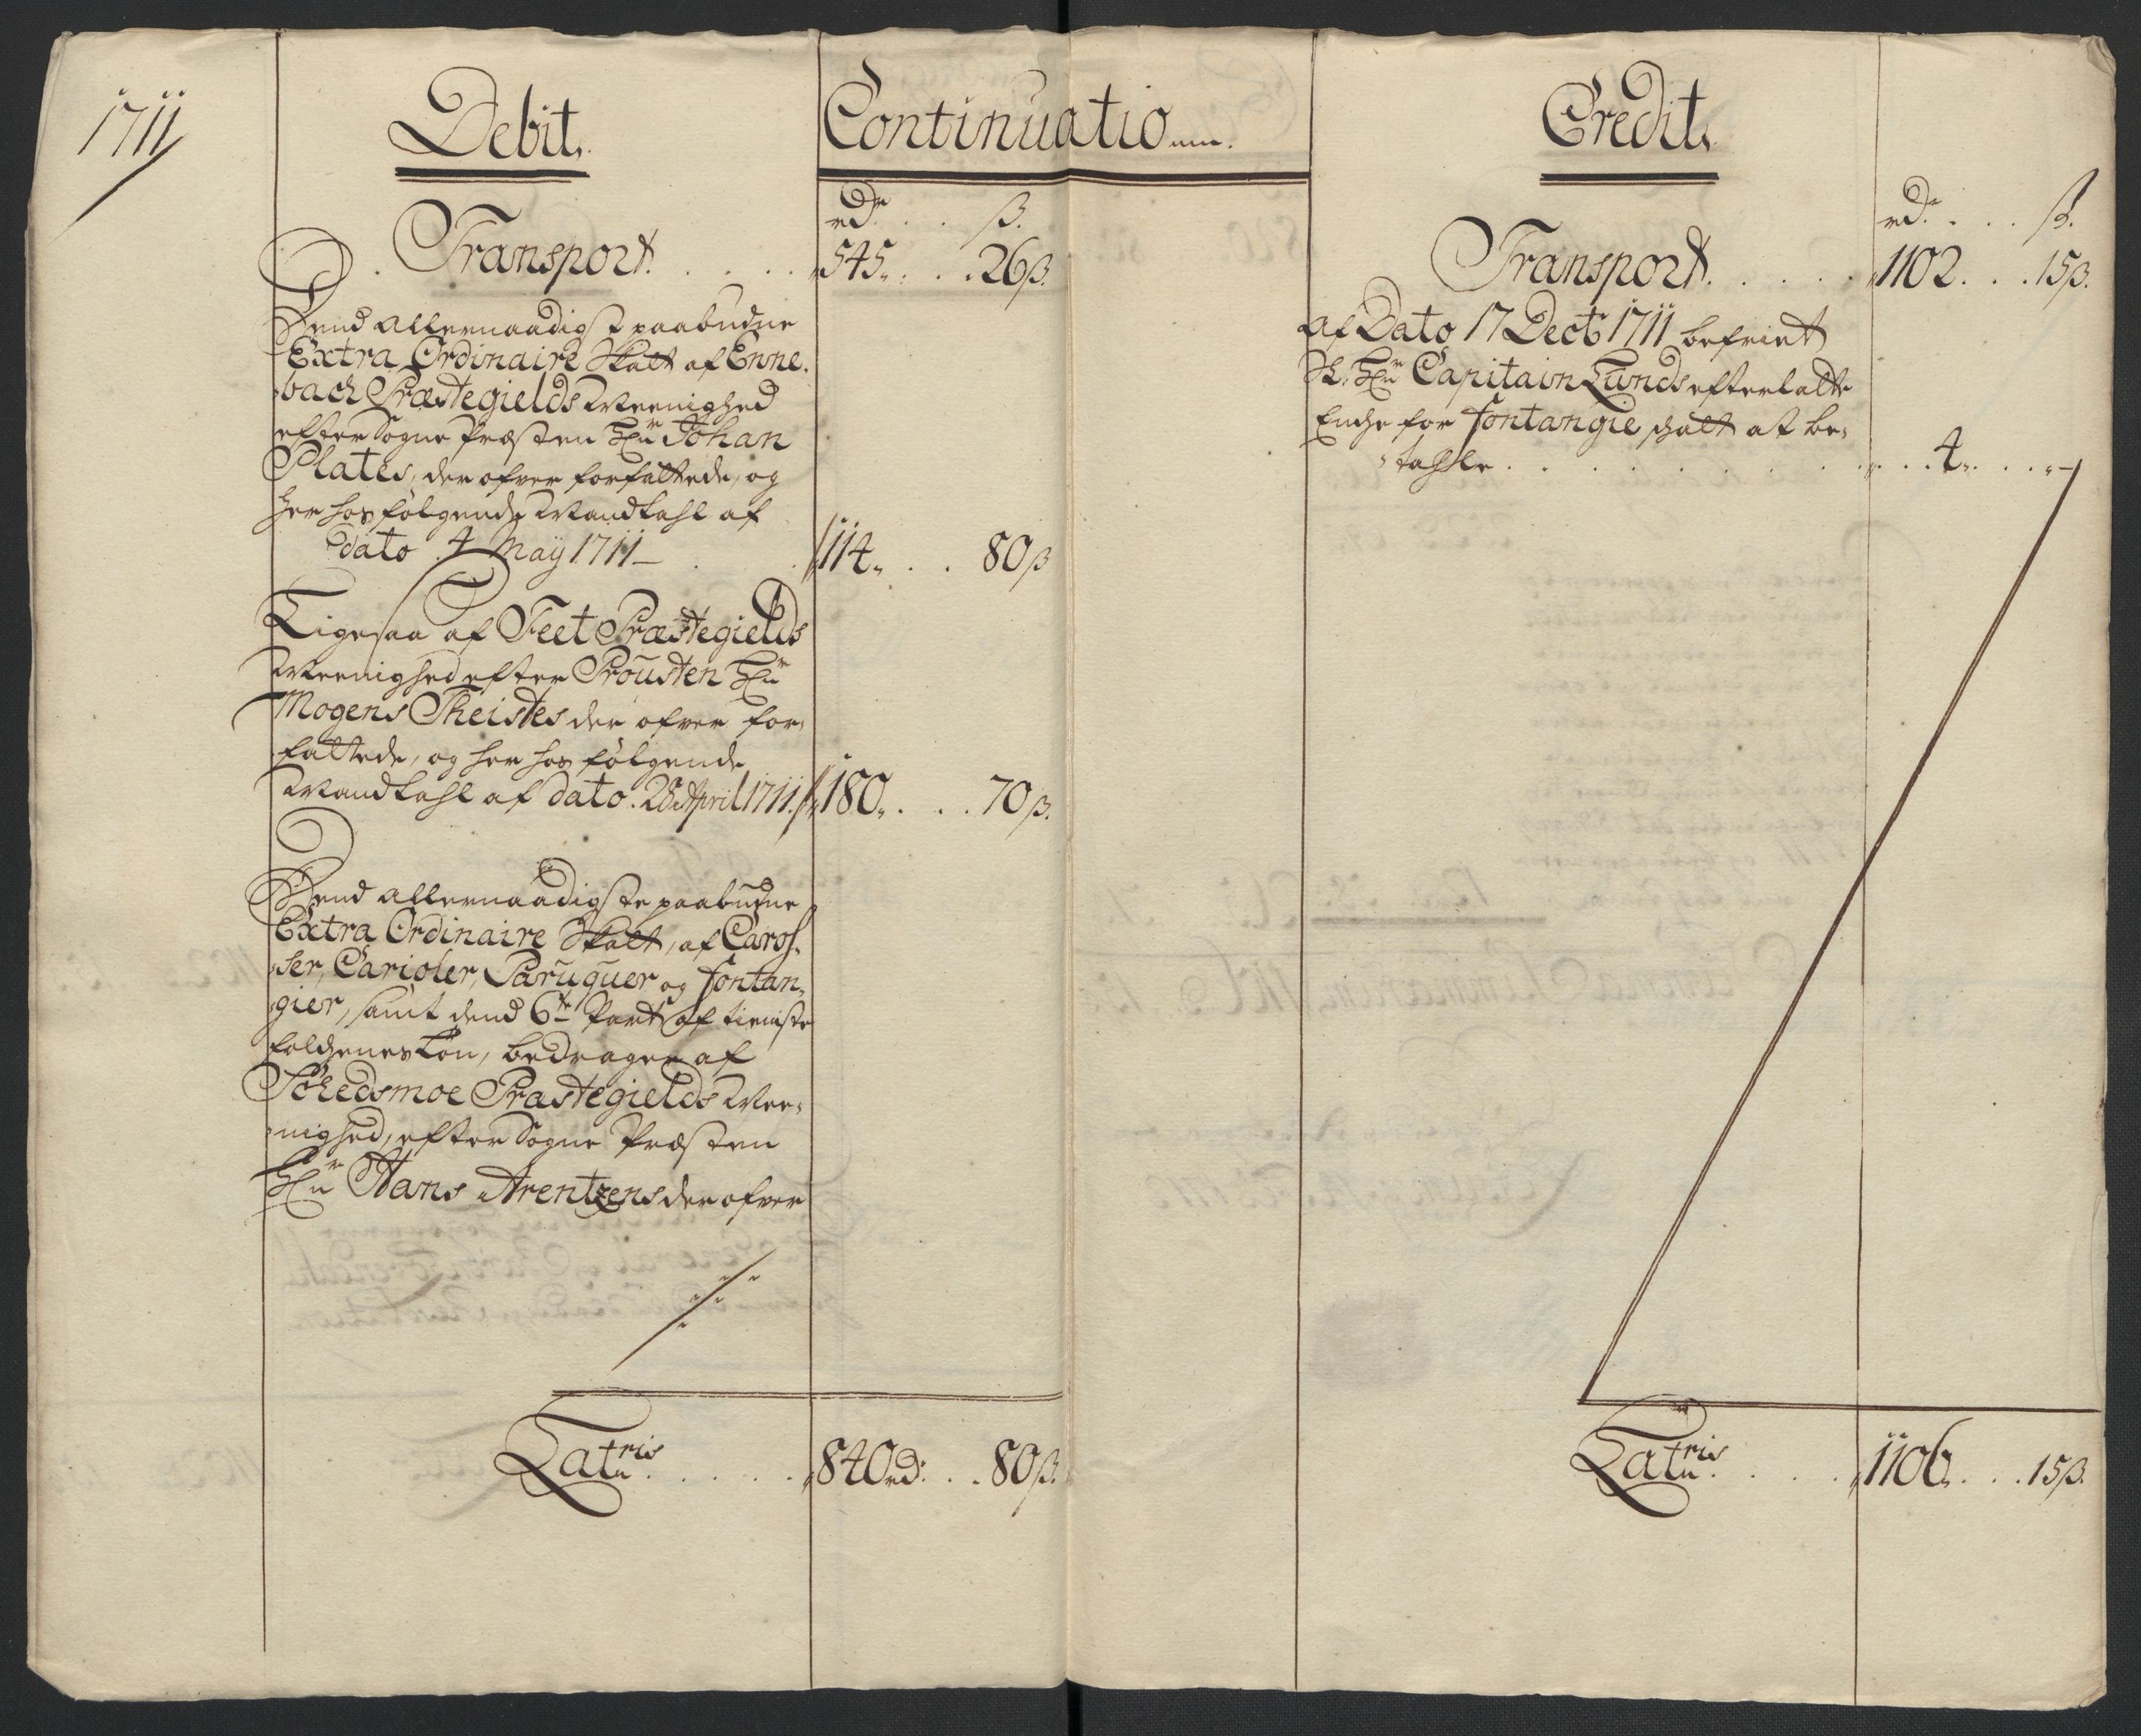 1711
Debit.
Continuatio
Credit.
rdr . . ß.
Transport . . . . 545. . . . 26ß.
Dend allernaadigst paabudne
Extra Ordinaire Skatt af Enne,
bach Præstegields Meenighed
efter Sogne Præsten Hr Johan
Plates, der ofver forfattede, og
her hos følgende Mandtahl af
dato 4 Maÿ 1711 . . 114. . . 80ß
Ligesaa af Feet Præstegields
Meenighed efter Prousten Hr
Mogens Theistes der ofver for,
fattede, og her hos følgende
Mandtahl af dato. 28 April 1711. 180. . . . 70ß.
Dend allernaadigste paabudne
Extra Ordinaire Skatt, af Caros,
ser, Carioler, Paruquer og fontan,
gier, samt dend 6te Part af tieniste
folchenes Løn, bedragen af
Skedsmoe Præstegields Mee,
nighed, efter Sogne Præsten
Hr Hans Arentzens der ofver
Latris . . . . . 840 rd: . . 80ß.
rd. . . . ß.
Transport . . . . . 1102. . . 15ß.
Af Dato 17 Decb 1711 befriet
Sl. Hr Capitain Lunds efterlatte
Enche for fontangie schatt at be,
tahle . . . . . . . . . 4. . . . -
Latris . . . . 1106. . . 15ß.